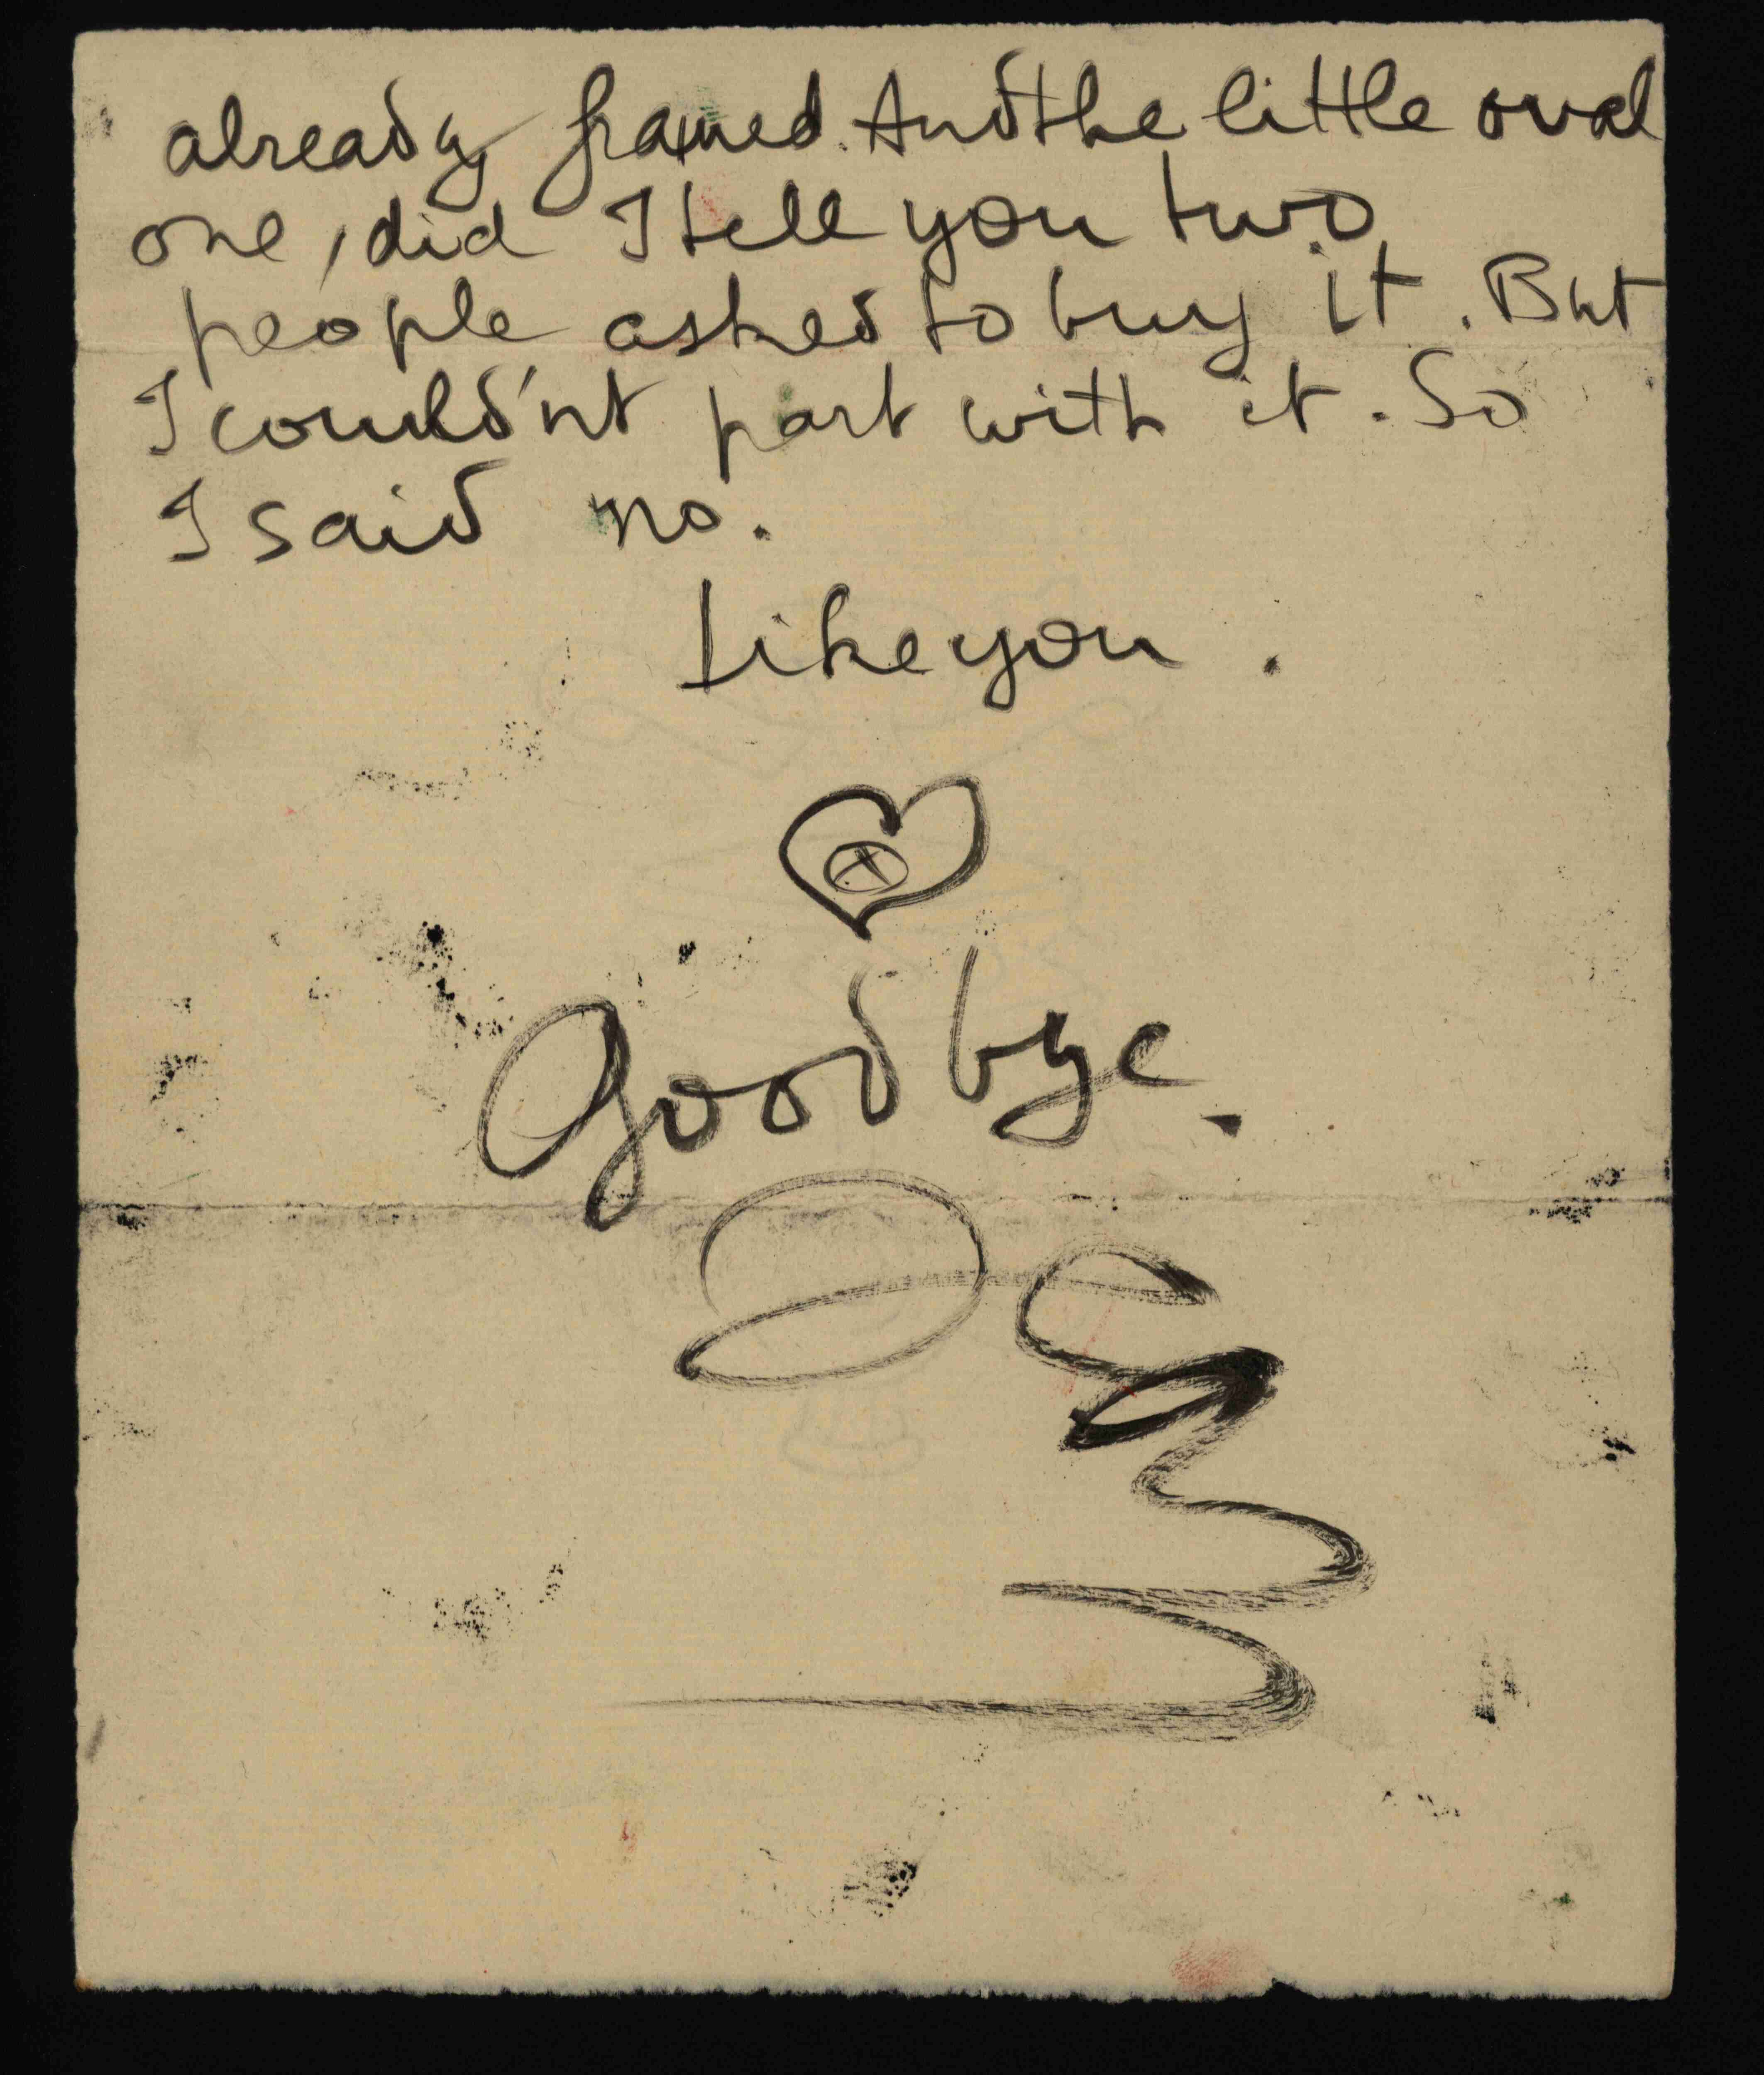 already framed. And the little oval
one, did I tell you two
people asked to buy it. But
I could'nt part with it. So
I said no.
Like you.
Goodbye.